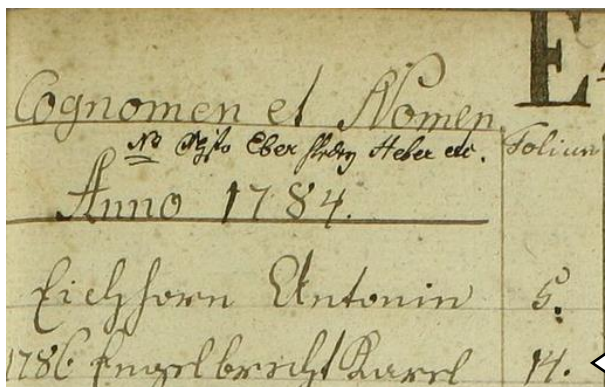 E
Cognomen et Nomen
Folium
NB Eber Heber etc.
Anno 1784.
Eichhorn Antonin 5.
1786 Engelbrecht Karel 14.